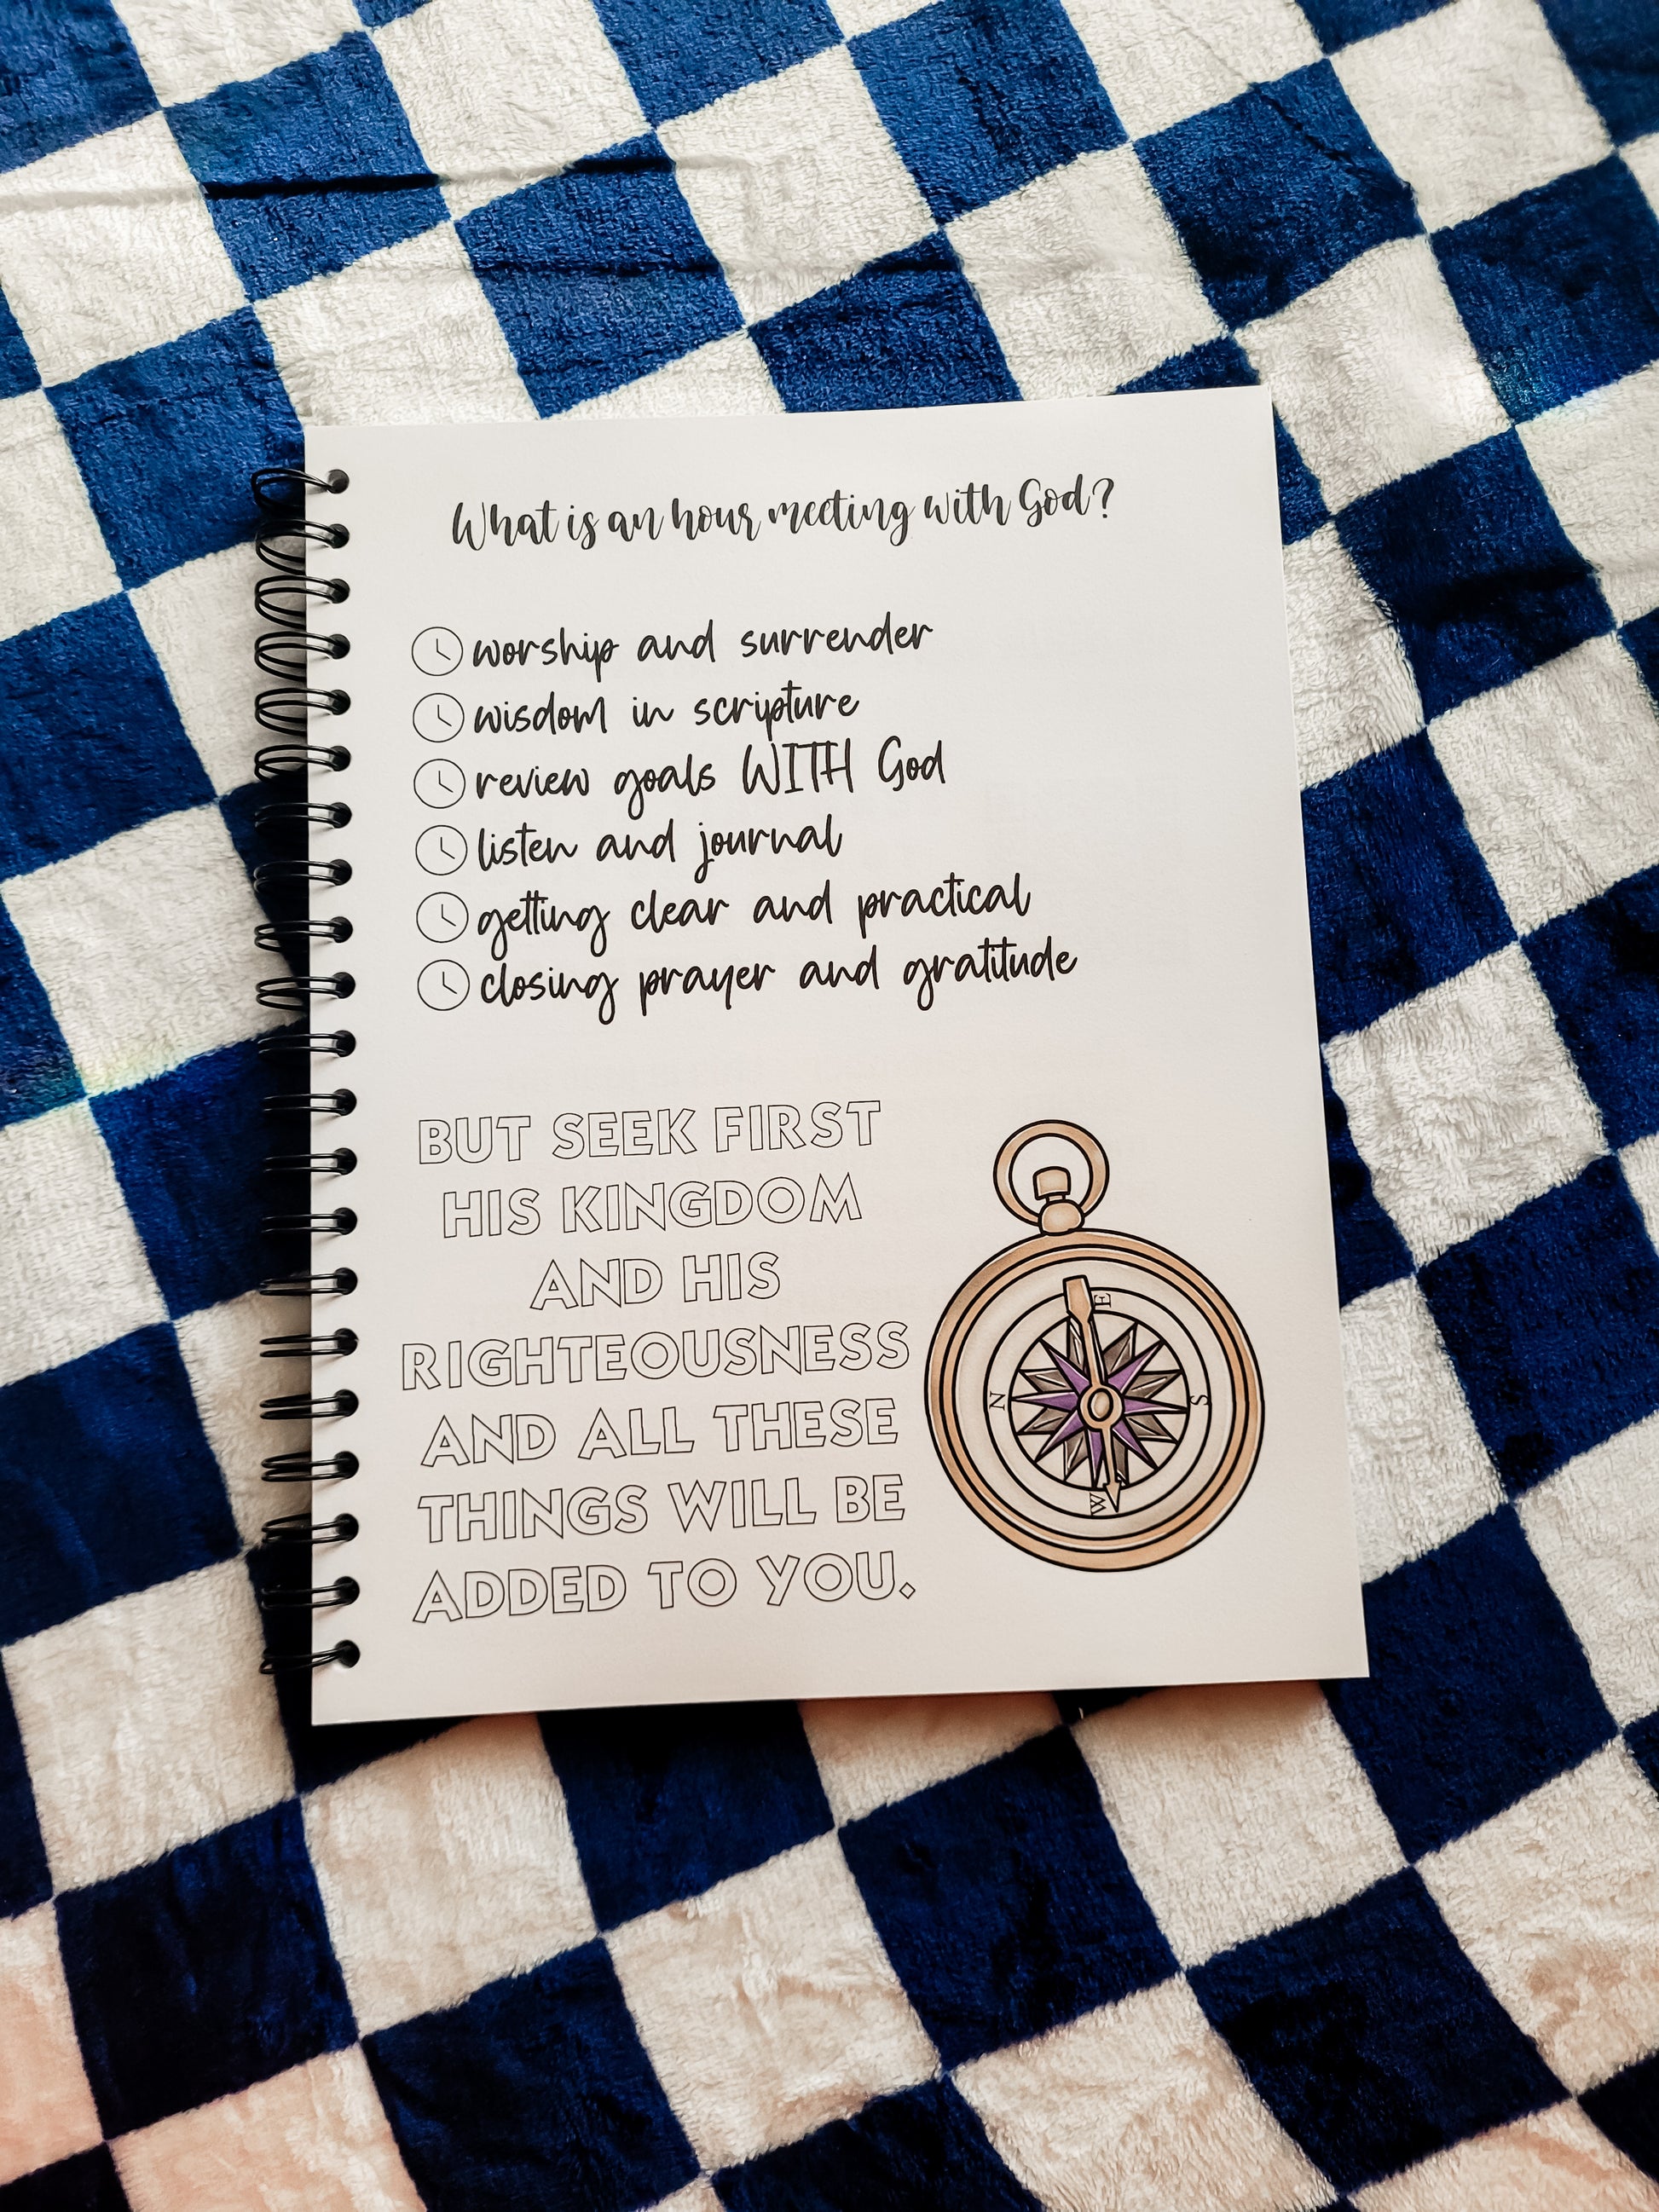 What is an hour meeting with God?
worship and surrender
wisdom in scripture
review goals WITH God
listen and journal
getting clear and practical
closing prayer and gratitude
BUT SEEK FIRST
HIS KINGDOM
AND HIS
RIGHTEOUSNESS
AND ALL THESE
THINGS WILL BE
ADDED TO YOU.
E
N
S
W